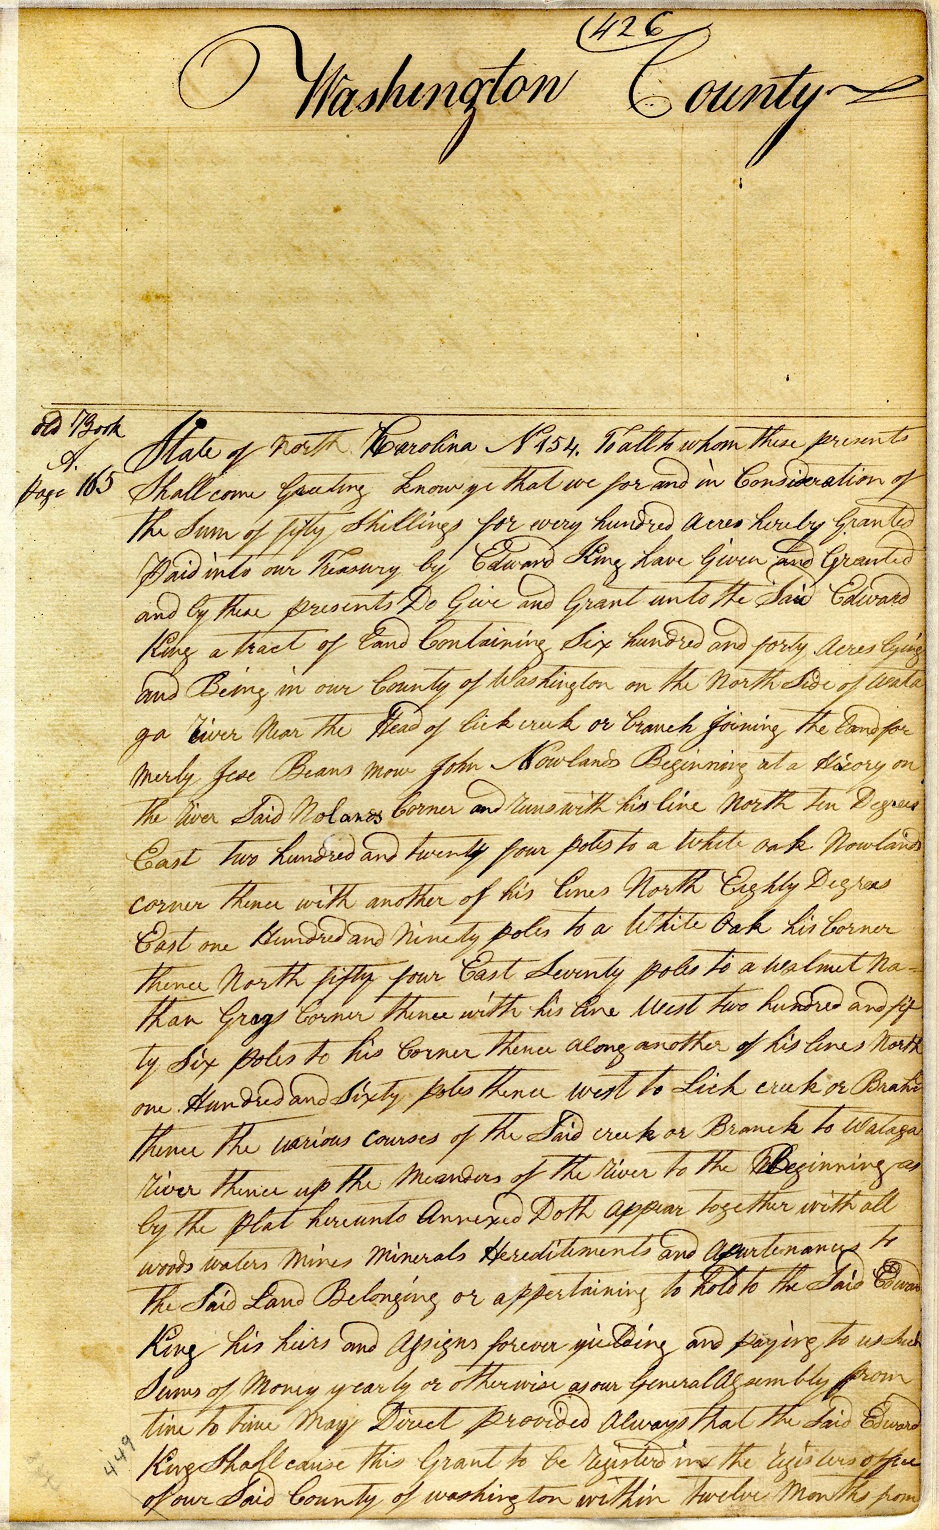 426
Washington County
old Book
A.
page 165
State of North Carolina No 454. To all to whom these presents
Shall come Greeting know ye that we for and in Consideration of
the Sum of fifty Shillings for every hundred Acres hereby Granted
Paid into our Treasury by Edward King have Given and Granted
and by these presents Do Give and Grant unto the Said Edward
King a tract of Land Containing Six hundred and forty Acres lying
and Being in our County of Washington on the North Side of Wata
ga River Near the Head of lick creek or branch joining the land for
merly Jese Beans now John Nowlands Beginning at a Hicory on
the River Said Nolands Corner and runs with his line North ten Degrees
East two hundred and twenty four poles to a White oak Nowlands
corner thence with another of his lines North Eighty Degrees
East one Hundred and Ninety poles to a White Oak his Corner
thence North fifty four East Seventy poles to a Walnut Na=
than Grays Corner thence with his line West two hundred and fif
ty Six poles to his Corner thence along another of his lines North
one Hundred and Sixty poles thence west to Lick creek or Branch
thence the various courses of the Said creek or Branch to Wataga
River thence up the Meanders of the River to the Beginning as
by the plat hereunto Annexed Doth appear together with all
woods waters Mines Minerals Hereditements and Apurtenances to
the Said Land Belonging or appertaining to hold to the Said Edward
King his heirs and Assigns forever yielding and paying to us Such
Sums of Money yearly or otherwise as our General Assembly from
time to time May Direct provided Always that the Said Edward
King Shall cause this Grant to be registerd in the registers office
of our Said County of washington within twelve Months from
449